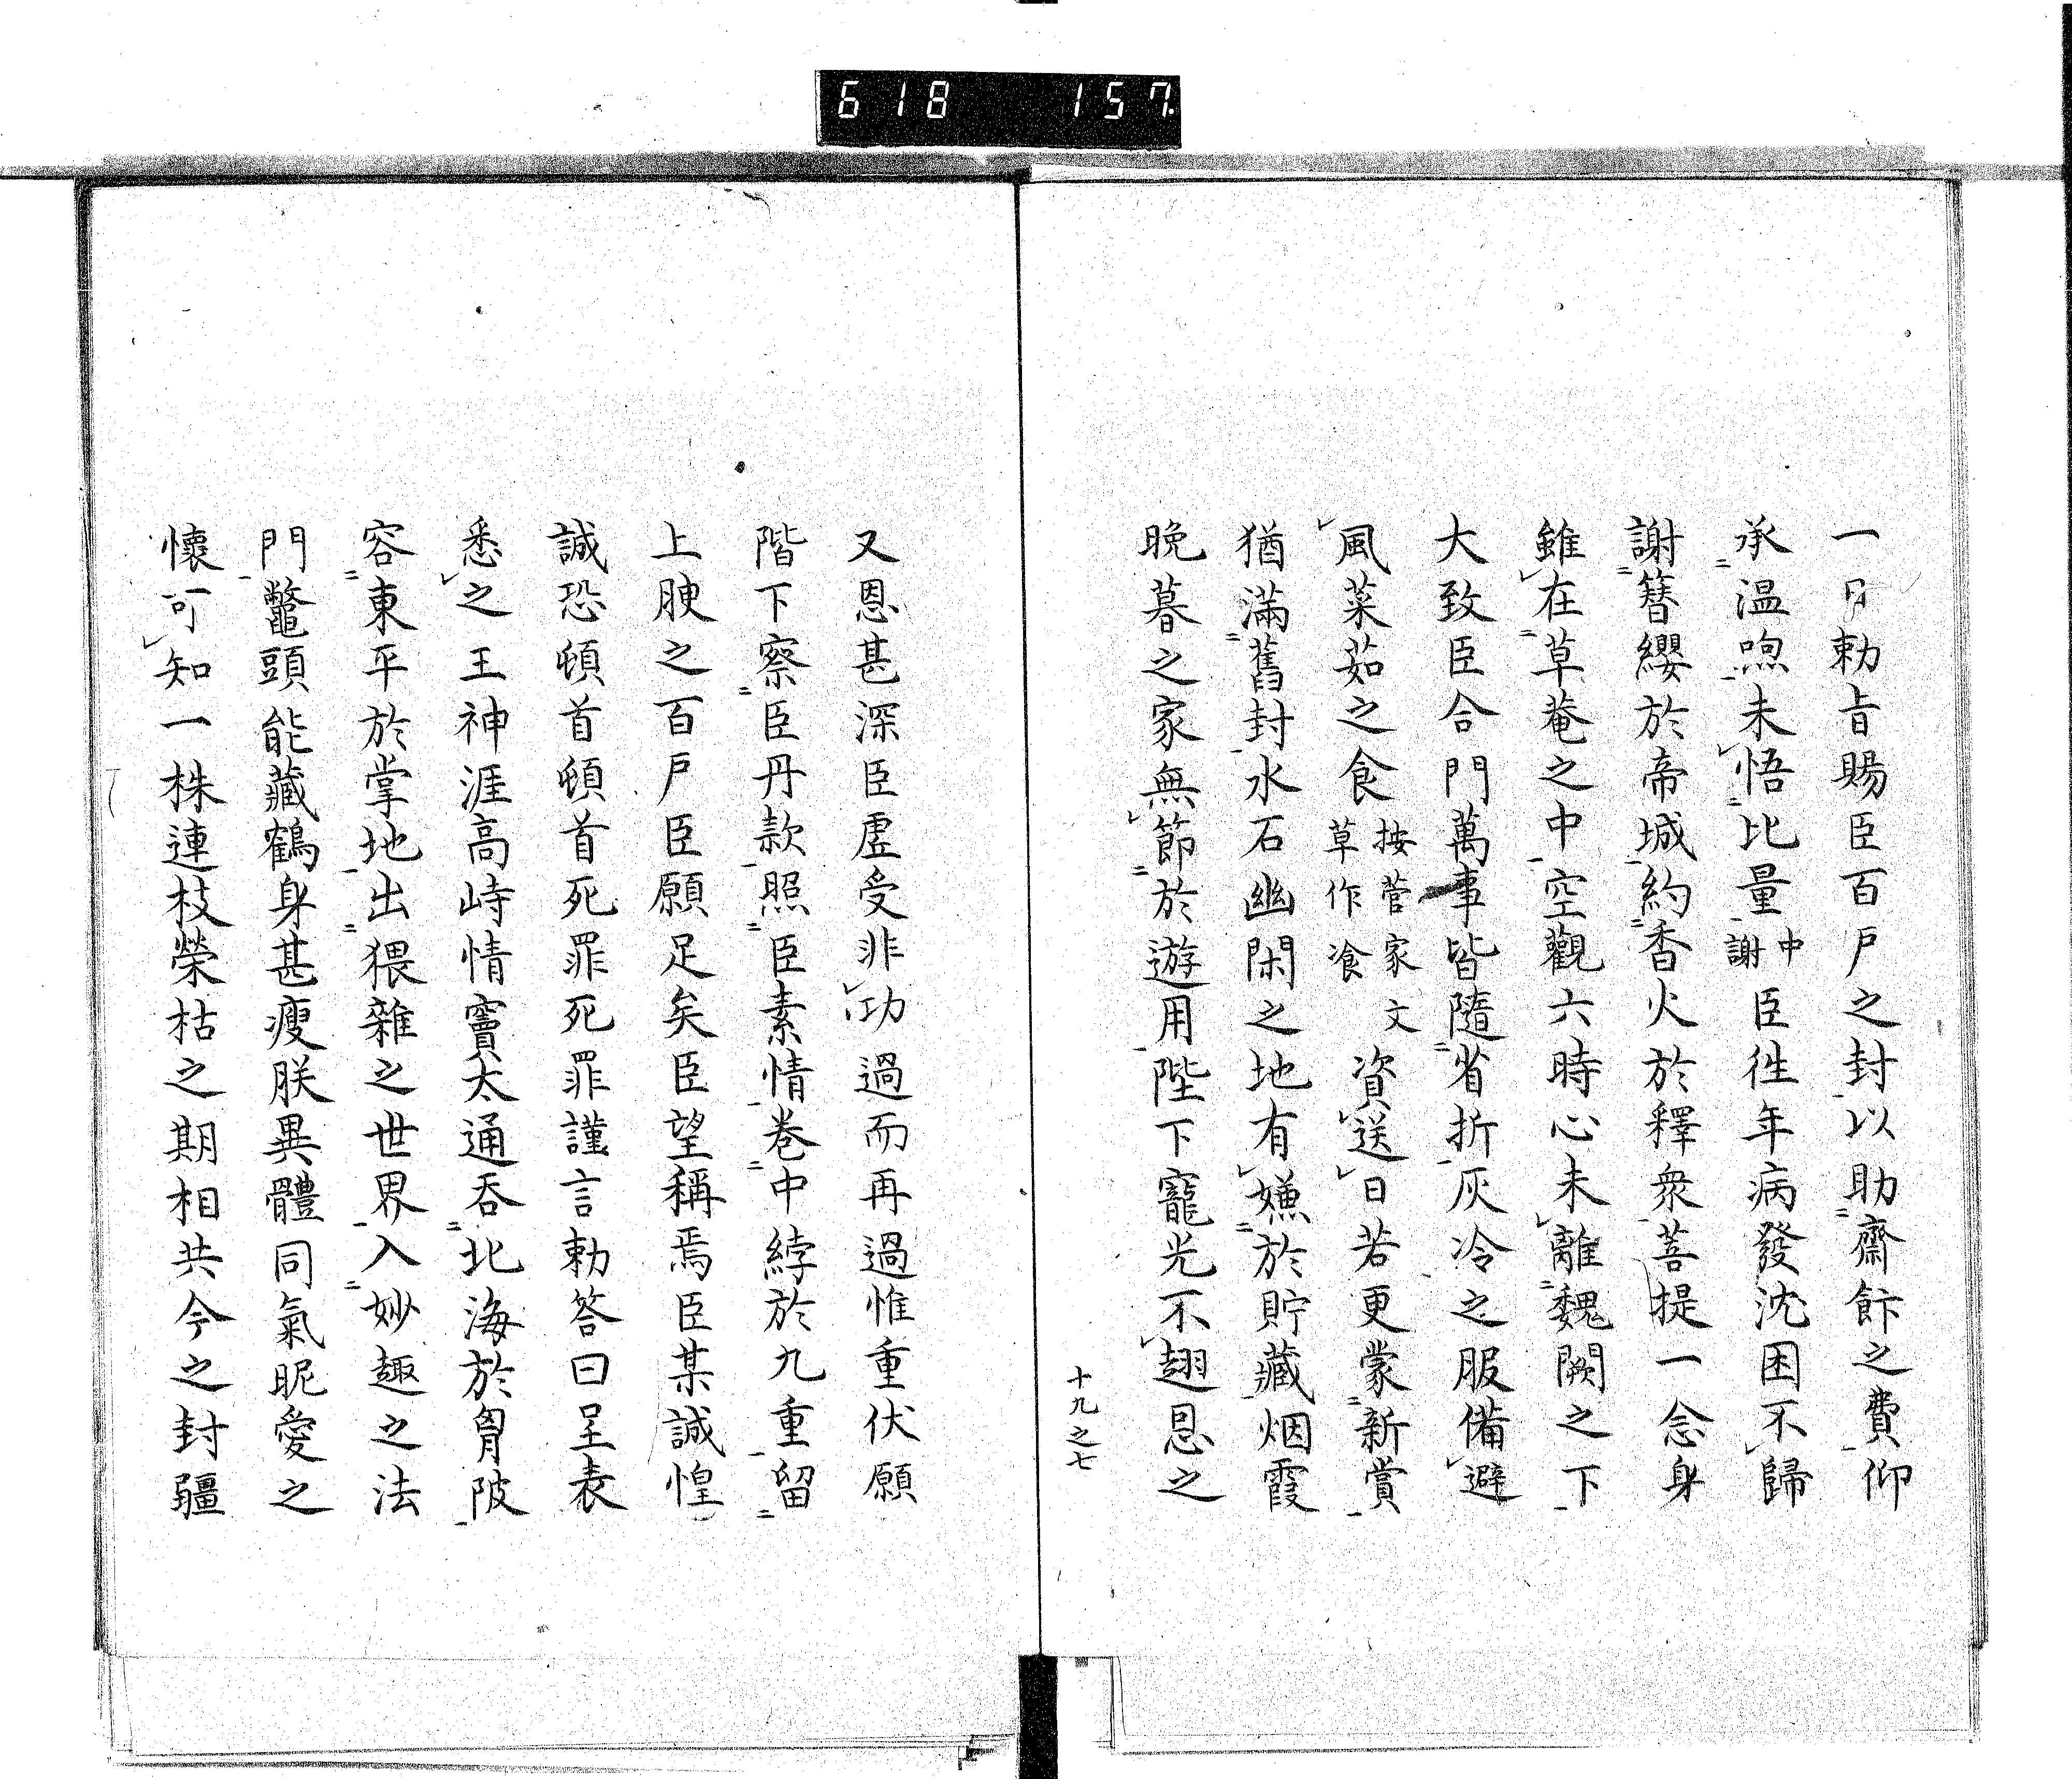 618 157
一日勅旨賜臣百戶之封以助齋飰之費仰
承温喣未悟比量中謝臣徃年病發沈困不歸
謝簪纓於帝城約香火於釋衆菩提一念身
雖在草菴之中空觀六時心未離魏闕之下
大致臣合門萬事皆隨省折灰冷之服備避
風菜茹之食按菅家文草作飡資送日若更蒙新賞
猶滿舊封水石幽閑之地有嫌於貯藏烟霞
晚暮之家無節於遊用陛下寵光不翅恩之
十九之七
又恩甚深臣虛受非功過而再過惟重伏願
階下察臣丹款照臣素情卷中綍於九重留
上腴之百戶臣願足矣臣望稱焉臣某誠惶
誠恐頓首頓首死罪死罪謹言勅答曰呈表
悉之王神涯高峙情竇太通吞北海於胷陂
容東平於掌地出猥雜之世界入妙趣之法
門鼈頭能藏鶴身甚瘦朕異體同氣昵愛之
懷可知一株連枝榮枯之期相共今之封疆